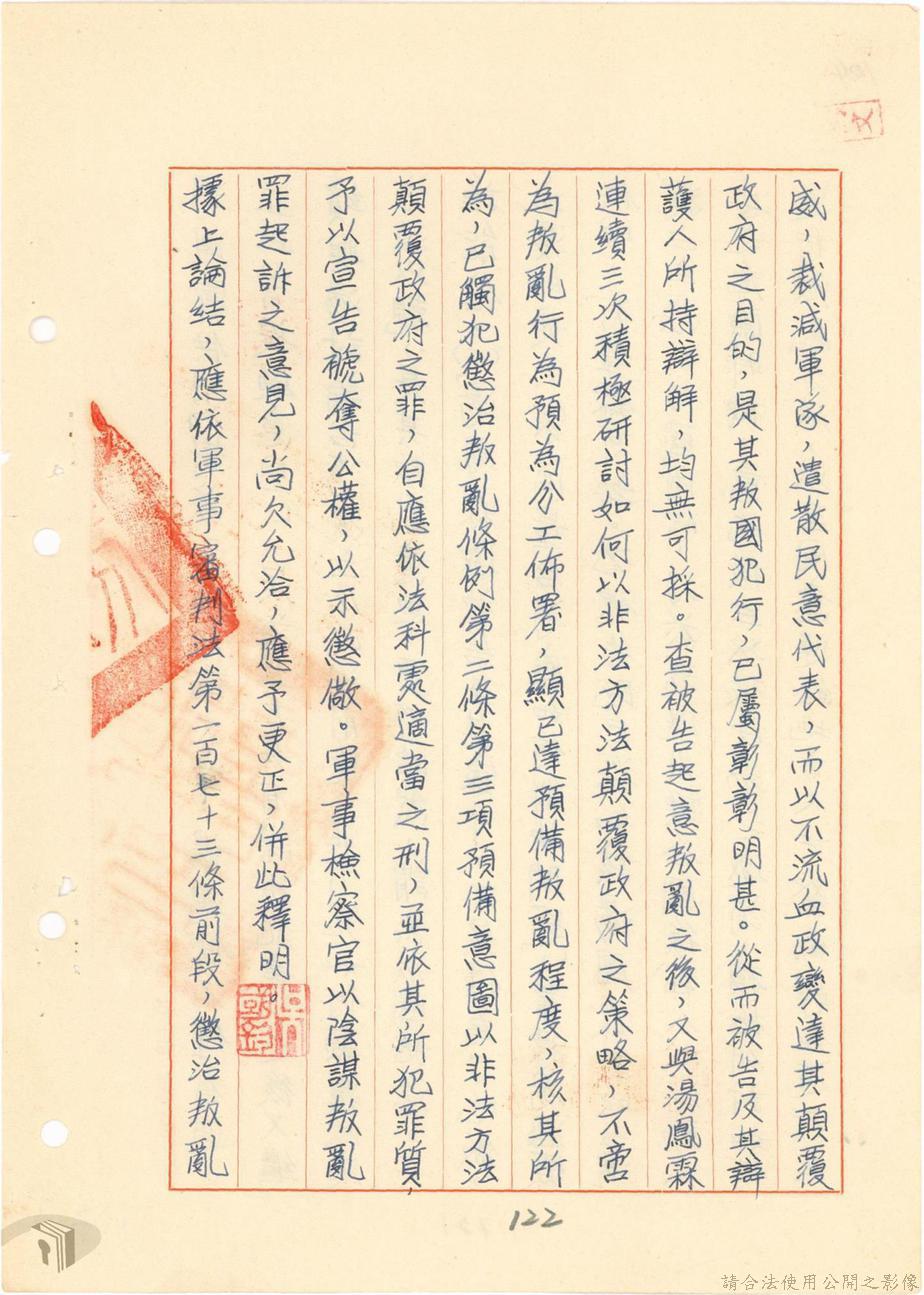 威，裁減軍隊，遣散民意代表，而以不流血政變達其顛覆
政府之目的，是其叛國犯行，已屬彰彰明甚。從而被告及其辯
護人所持辯解，均無可採。查被告起意叛亂之後，又與湯鳳霖
連續三次積極研討如何以非法方法顛覆政府之策略，不啻
為叛亂行為預為分工佈署，顯已達預備叛亂程度，核其所
為，已觸犯懲治叛亂條例第二條第三項預備意圖以非法方法
顛覆政府之罪，自應依法科處適當之刑，並依其所犯罪質，
予以宣告褫奪公權，以示懲儆。軍事檢察官以陰謀叛亂
罪起訴之意見，尚欠允洽，應予更正，併此釋明。
據上論結，應依軍事審判法第一百七十三條前段，懲治叛亂
122
請合法使用公開之影像